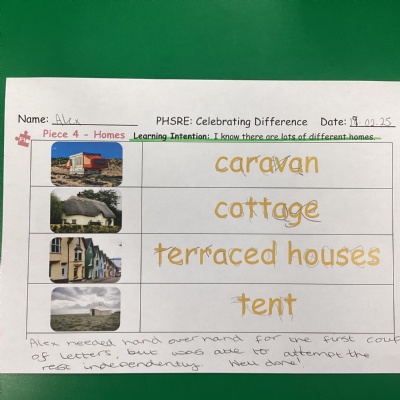 Name: Alex PHSRE: Celebrating Difference Date: 19.02.25
Piece 4 - Homes Learning Intention: I know there are lots of different homes.
caravan
cottage
terraced houses
tent
Alex needed hand over hand for the first coup
of letters, but was able to attempt the
rest independently. Well done!